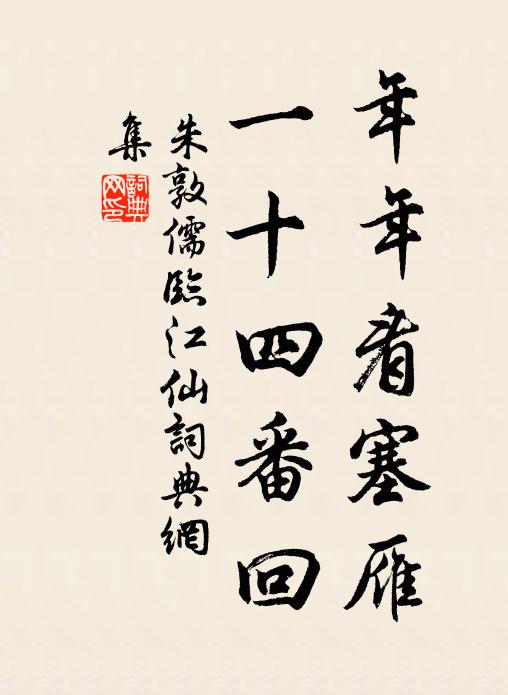 年年看塞雁
一十四番回
朱敦儒臨江仙詞典網
集
詞典
网印